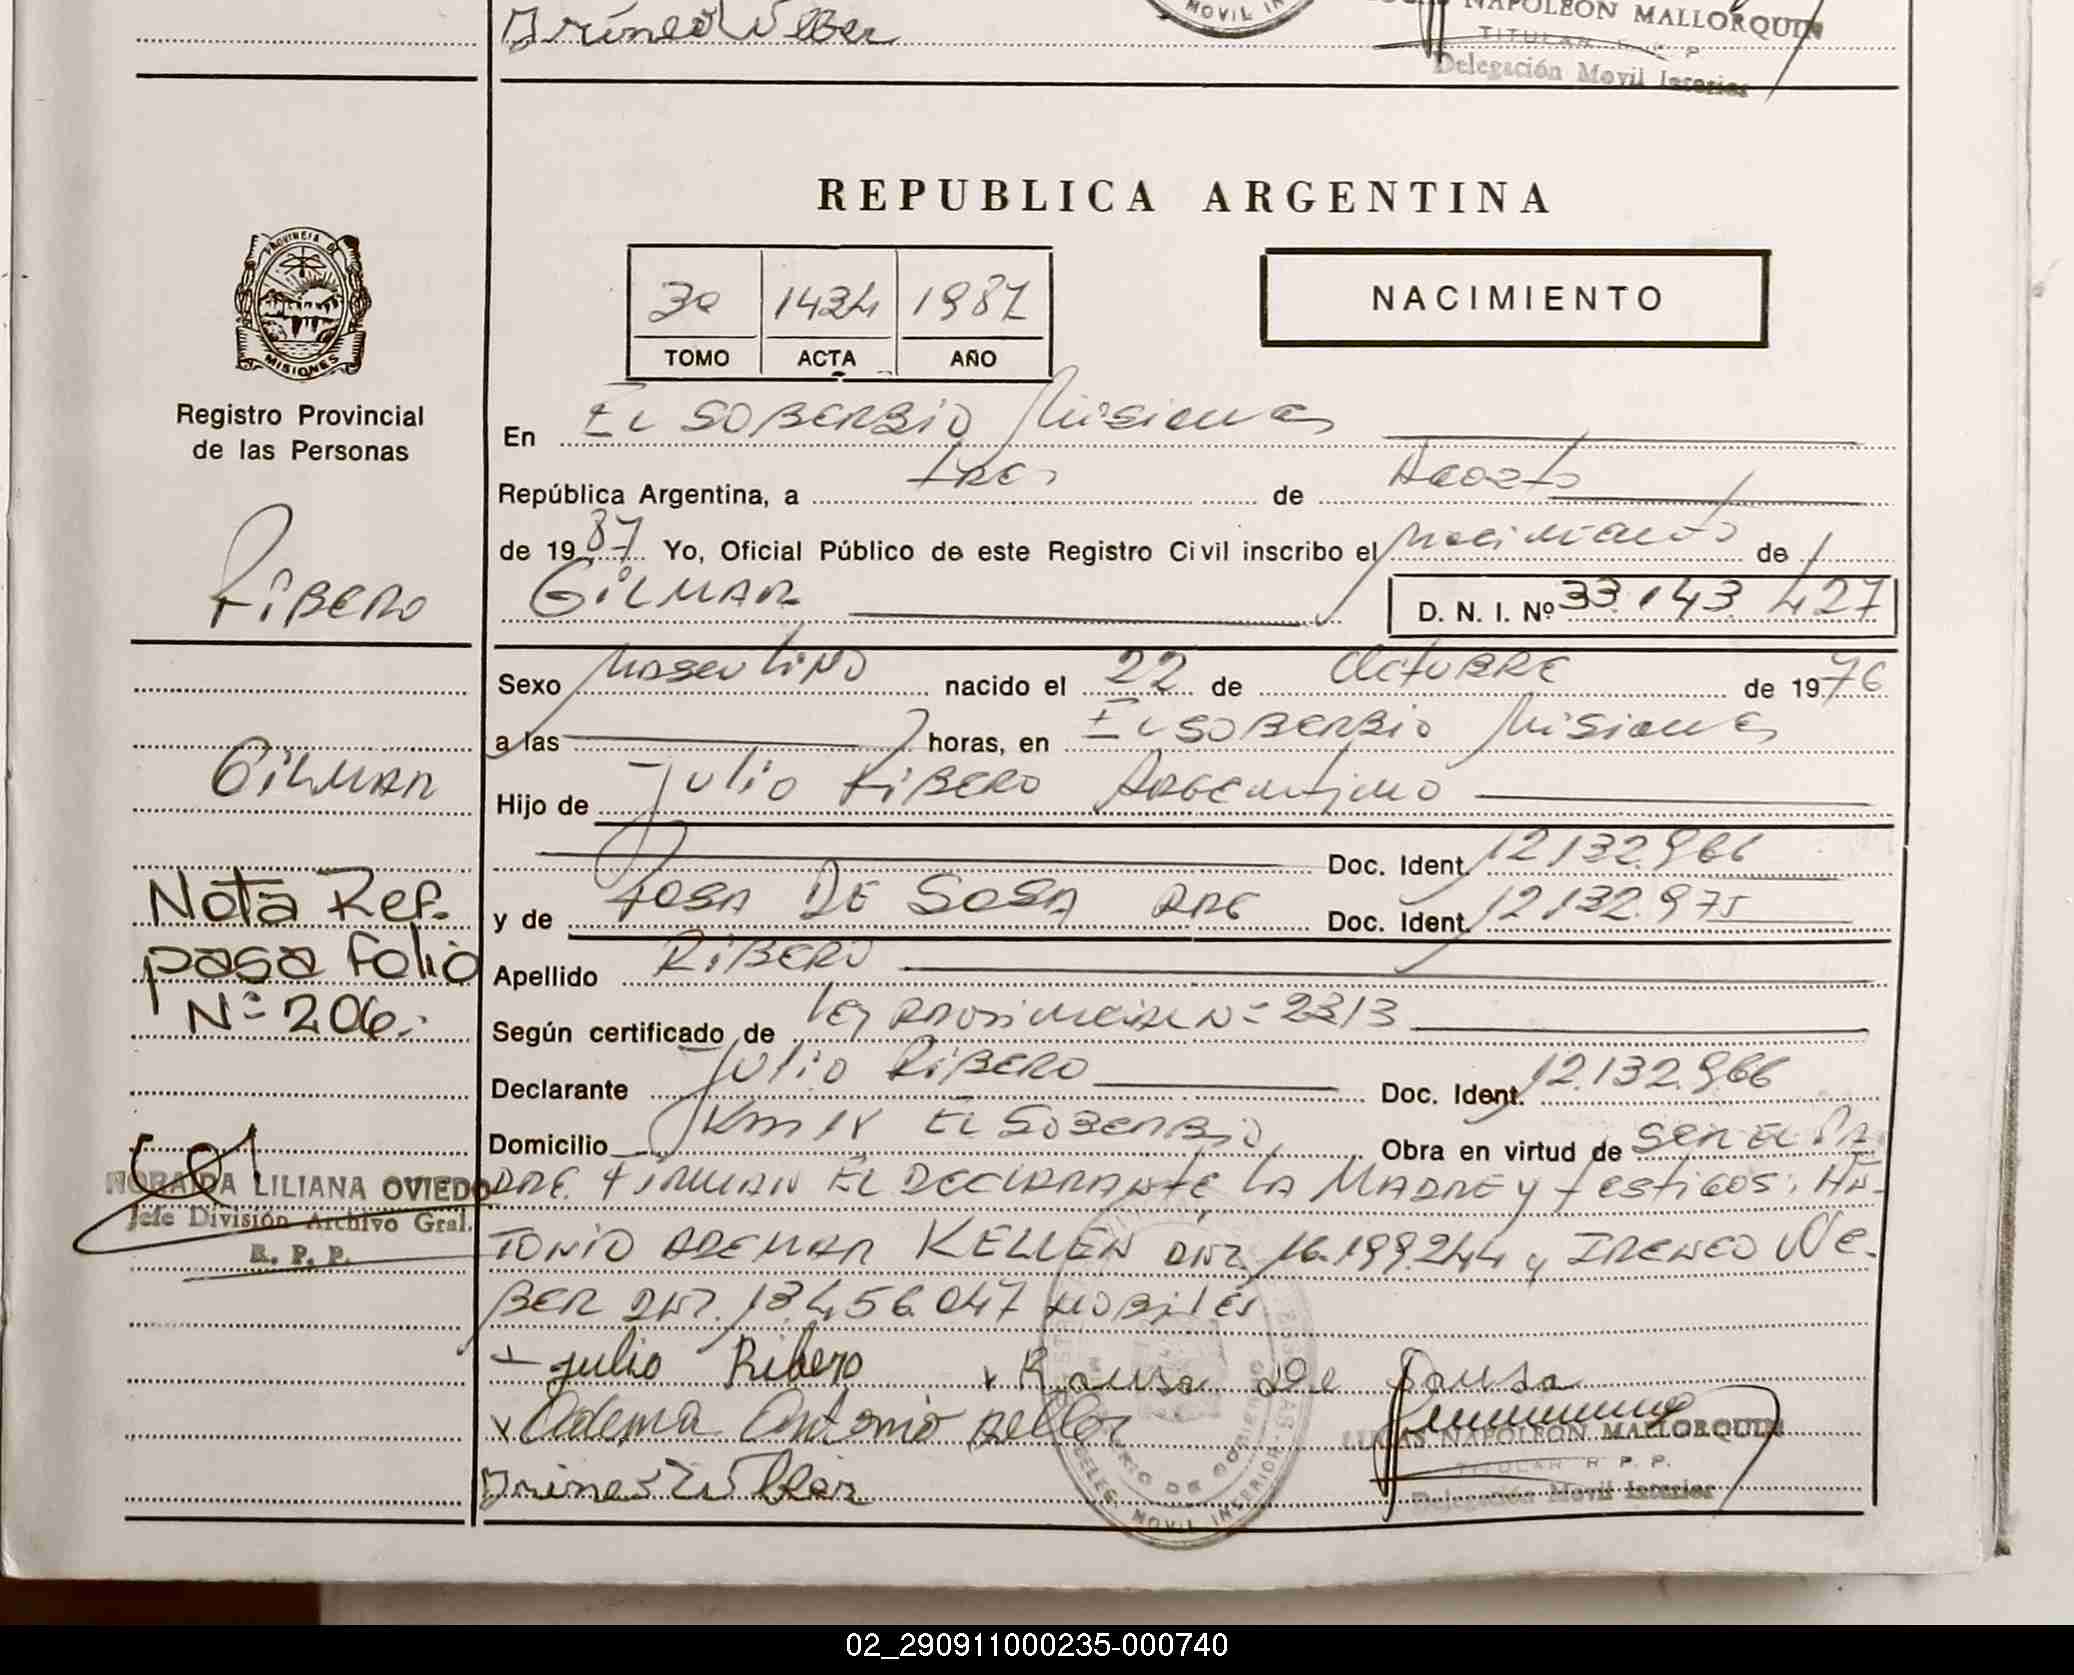 MOVIL IN
NAPOLEON MALLORQUIN
TITULAR R. P. P.
Delegación Movil Interior
REPUBLICA ARGENTINA
PROVINCIA DE
MISIONES
3º 1434 1987
TOMO ACTA AÑO
NACIMIENTO
Registro Provincial
de las Personas
En EL SOBERBIO Misiones
República Argentina, a tres de Agosto
de 1987 Yo, Oficial Público de este Registro Civil inscribo el nacimiento de
GILMAR
D. N. I. Nº 33.143.427
RIBERO
Sexo Masculino nacido el 22 de Octubre de 1976
a las horas, en EL SOBERBIO Misiones
GILMAR
Hijo de Julio RIBERO Argentino
Doc. Ident. 12.132.966
y de ROSA DE SOSA ARG Doc. Ident. 12.132.975
Nota Ref.
pasa folio
Nº 206.
Apellido RIBERO
Según certificado de Ley provincial Nº 2313
Declarante Julio RIBERO Doc. Ident. 12.132.966
Domicilio Km 18 EL SOBERBIO Obra en virtud de SER EL PA
DRE. FIRMAN EL DECLARANTE LA MADRE y testigos: AN-
TONIO ADEMAR KELLER DNI. 16.199.244 y IRENEO WE-
BER DNI. 13.456.047 MOBILES
LILIANA OVIEDO
Jefe División Archivo Gral.
R. P. P.
Julio Ribero Rousa de Sousa
Adema Antonio Keller
LUCAS NAPOLEON MALLORQUIN
TITULAR R. P. P.
Delegación Movil Interior
DELEG. MOVIL INTERIOR
02_290911000235-000740